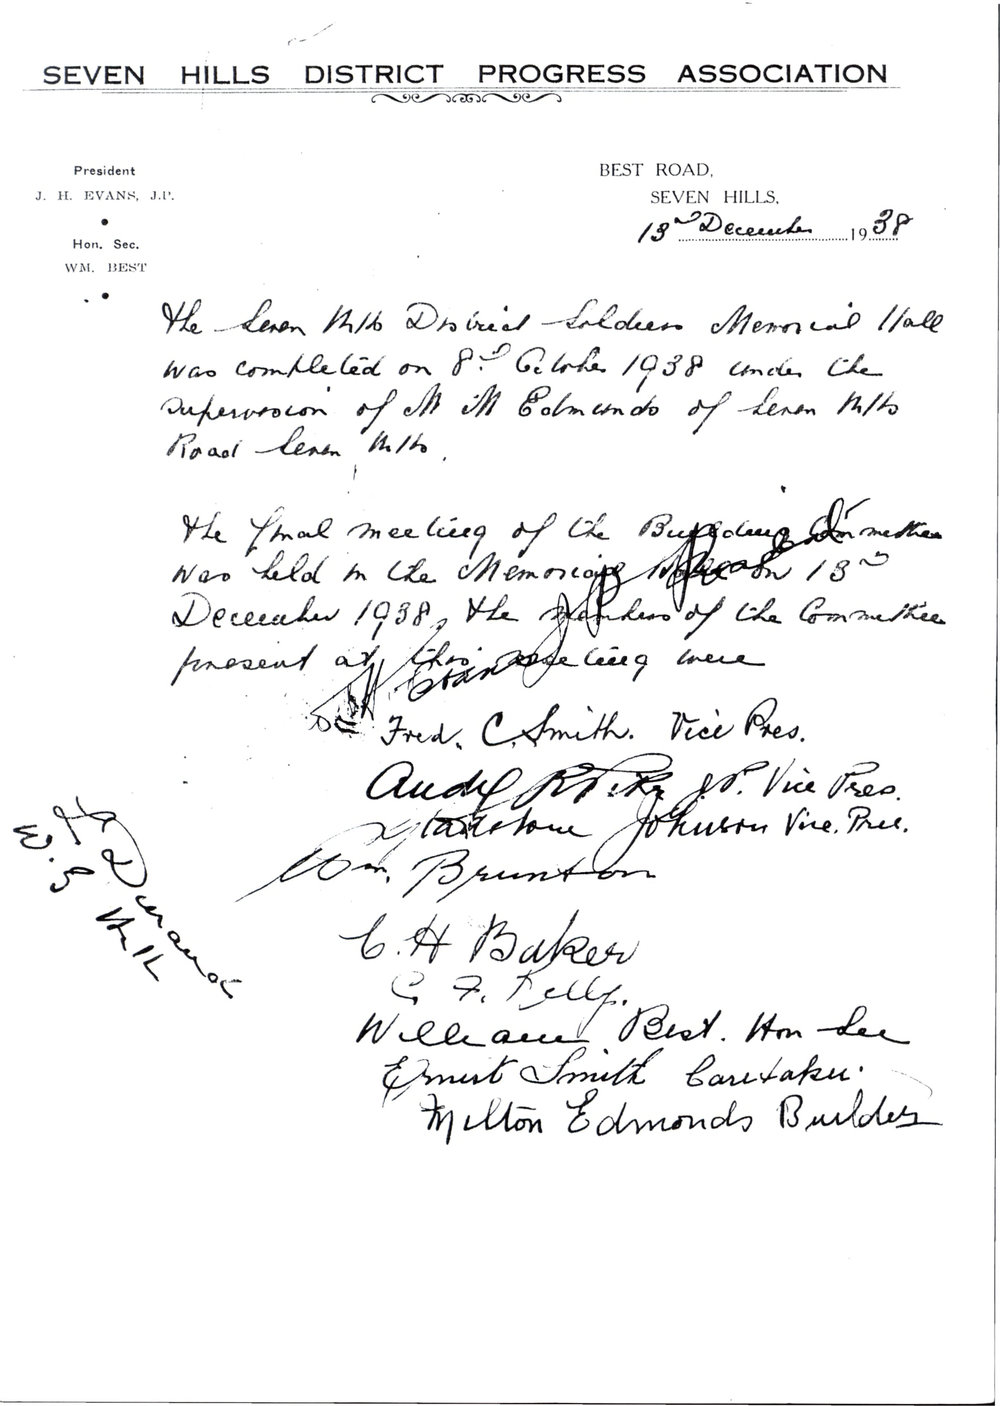 SEVEN HILLS DISTRICT PROGRESS ASSOCIATION
President
J. H. EVANS, J.P.
Hon. Sec.
WM. BEST
BEST ROAD,
SEVEN HILLS,
13th December 1938
The Seven Hills District Soldiers Memorial Hall
was completed on 8th October 1938 under the
supervision of Mr M Edmunds of Seven Hills
Road Seven Hills.
The final meeting of the Building Committee
was held in the Memorial Hall on 13th
December 1938, the members of the Committee
present at this meeting were
J H Evans
Fred. C. Smith. Vice Pres.
J.P. Vice Pres.
Gladstone Johnson Vice. Pres.
Wm. Brunton
C. H Baker
C. F. Kelly.
William Best. Hon Sec
Ernest Smith Caretaker.
Milton Edmonds Builder
Durand